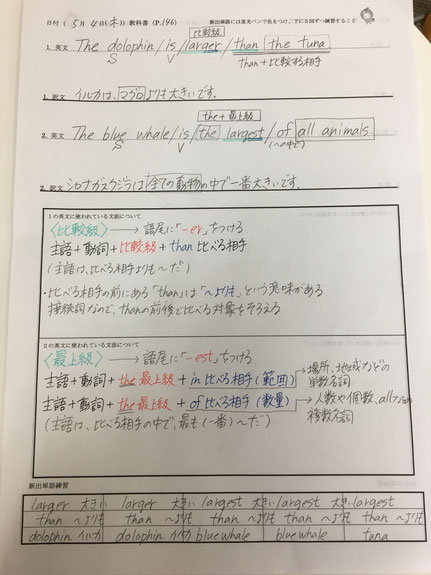 日付（ 5月4日(木)）教科書（P.146） 新出単語には蛍光ペンで色をつけ、下に5回ずつ練習すること
比較級
1. 英文 The dolophin / is / larger / than the tuna
S V than + 比較する相手
1. 訳文 イルカは、マグロよりも大きいです。
the + 最上級
2. 英文 The blue whale / is / the largest / of all animals.
S V (〜の中で)
2. 訳文 シロナガスクジラは全ての動物の中で一番大きいです。
1の英文に使われている文法について
〈比較級〉 → 語尾に「-er」をつける
主語＋動詞＋比較級＋than 比べる相手
(主語は、比べる相手よりも〜だ)
・比べる相手の前にある「than」は「〜よりも」という意味がある
接続詞なので、thanの前後で比べる対象をそろえる。
2の英文に使われている文法について
〈最上級〉 → 語尾に「-est」をつける
主語＋動詞＋the 最上級＋in 比べる相手(範囲) → 場所、地域などの単数名詞
主語＋動詞＋the 最上級＋of 比べる相手(数量) → 人数や個数、allなどの複数名詞
(主語は、比べる相手の中で、最も(一番)〜だ)
新出単語練習
larger 大きい larger 大きい largest 大きい largest 大きい largest
than 〜よりも than 〜よりも than 〜よりも than 〜よりも than 〜よりも
dolophin イルカ dolophin イルカ blue whale blue whale tuna